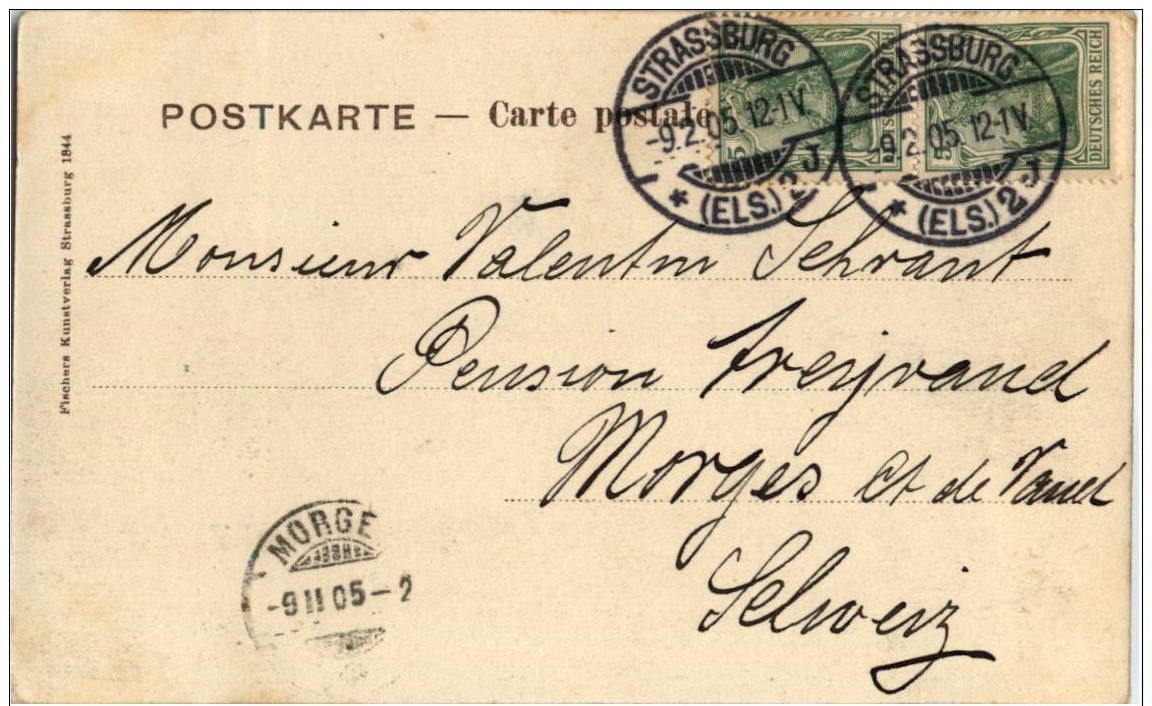 POSTKARTE — Carte postale
STRASSBURG
-9.2.05. 12-1V.
* (ELS.) 2 J
STRASSBURG
-9.2.05. 12-1V.
* (ELS.) 2 J
5
5
DEUTSCHES REICH
Fischers Kunstverlag Strassburg 1844
Monsieur Valentin Schrant
Pension
Morges Ct de Vaud
Schweiz
MORGE
-9 II 05-2